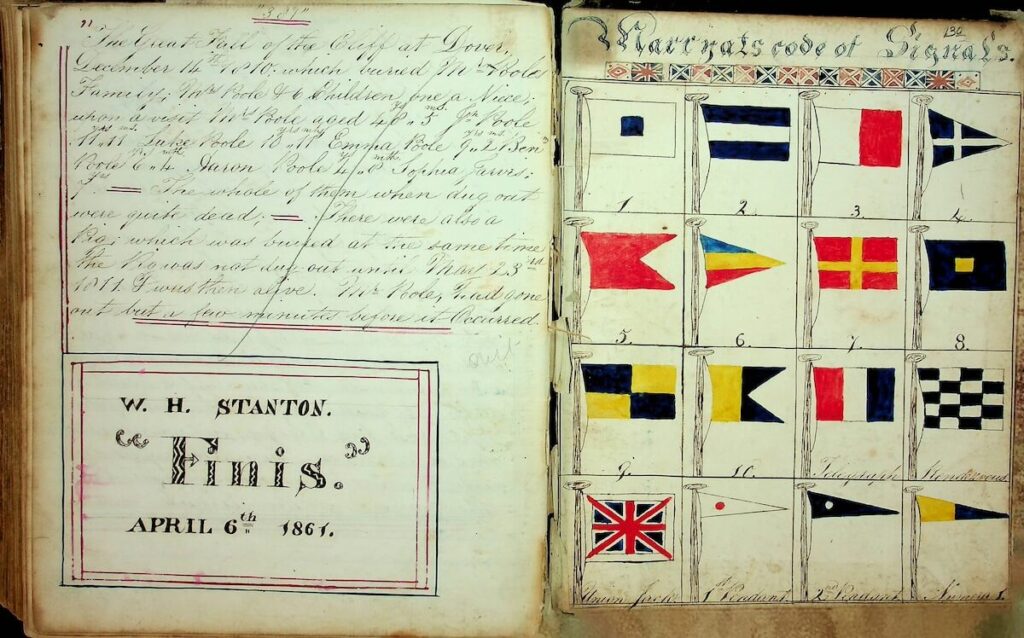 The Great Fall of the Cliff at Dover,
December 14th 1810; which buried Mr Poole
Family; Mrs Poole & 6 Children, one a Niece;
upon a visit Mrs Poole aged Poole
Luke Poole Emma Poole
Poole Aaron Poole Sophia Jarvis;
The whole of them when dug out
were quite dead; There were also a
Pig; which was buried at the same time
the Pig was not dug out until 23rd
1811 & was then alive. Mr Poole, had gone
out but a few minutes before it Occurred.
W. H. STANTON.
"Finis."
APRIL 6th 1861.
130
Marryats code of Signals.
1 2. 3. 4.
5. 6. 7. 8.
9. 10. Telegraph Rendezvous
Union Jack. 1st Pendant. 2nd Pendant. Numeral.